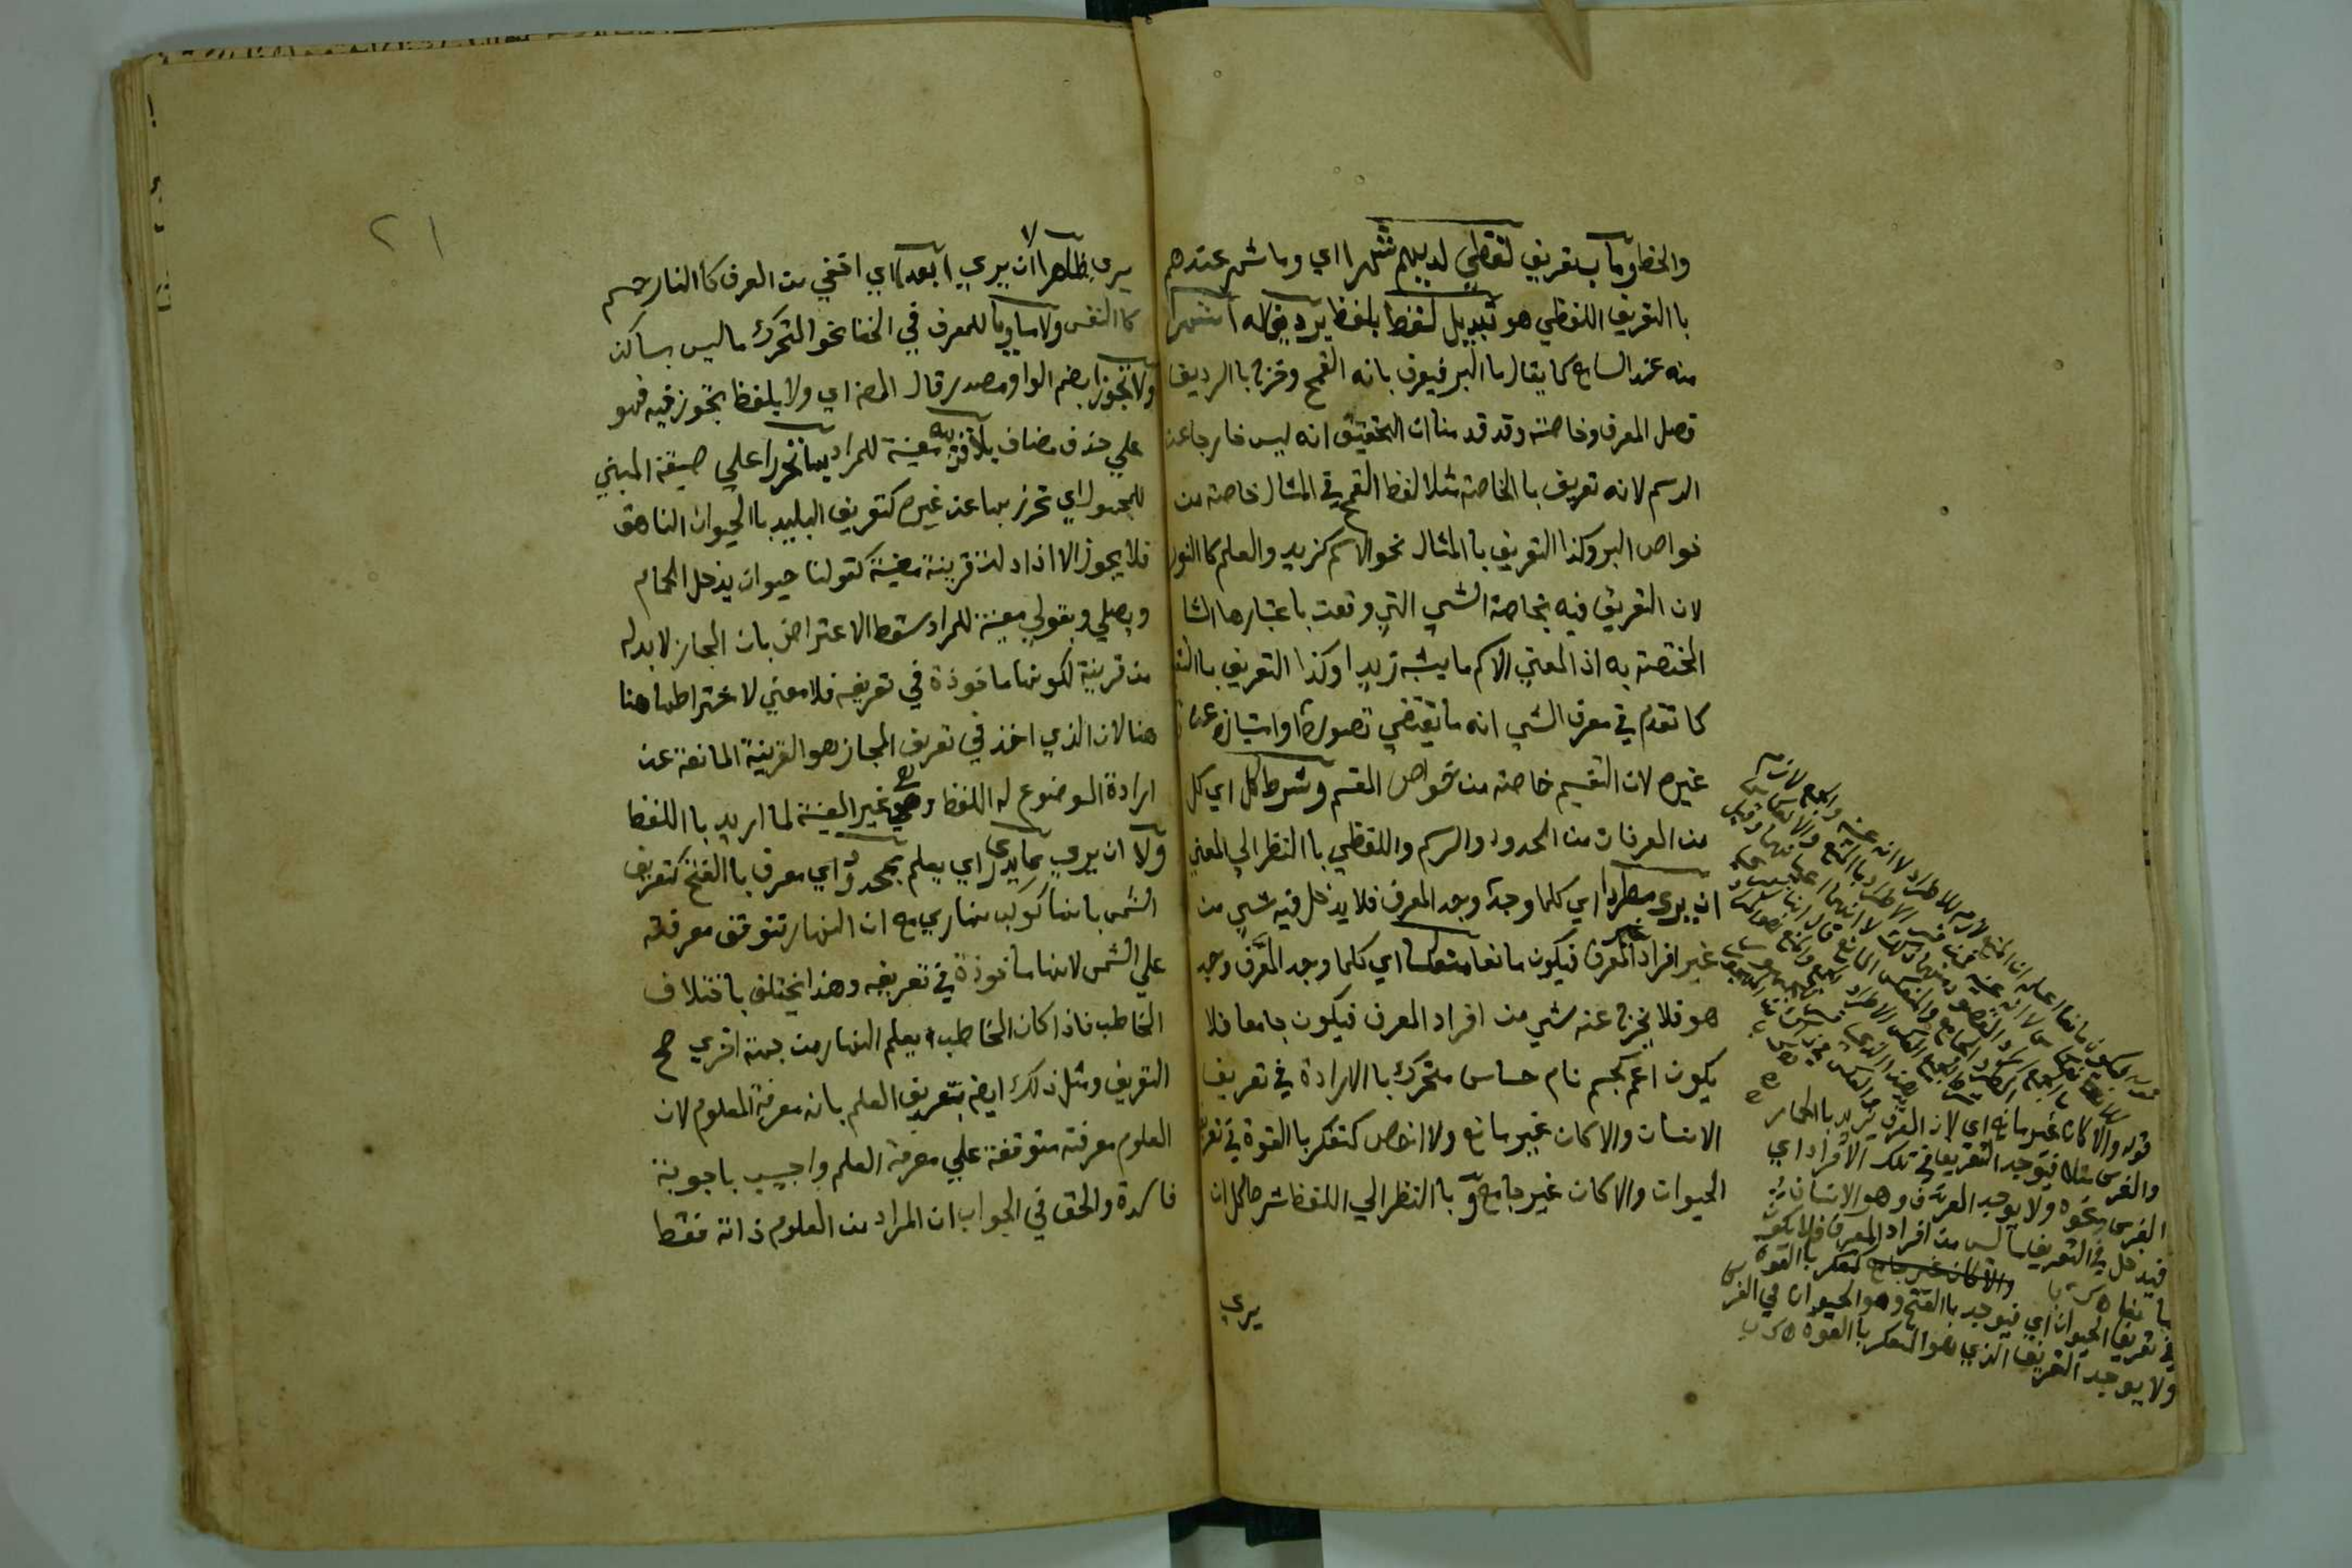 والخطا وما بتعريف لفظي لديهم شهرا اي وما شهر عندهم
با التعريف اللفظي هو تبديل لفظ بلفظ يرديف له اشهرا
منه عند السامع كما يقال ما البر فيعرف بانه القمح وخرج با الرديف
فصل المعرف وخاصته وقد قدمنا ان التحقيق انه ليس خارجا عن
الرسم لانه تعريف با الخاصة مثلا لفظ القمح في المثال خاصة من
خواص البر وكذا التعريف با المثال نحو الاسم كزيد والعلم كا النور
لان التعريف فيه بخاصة الشي التي وقعت باعتبارها المشا
المختصة به اذ المعني الاسم ما يشبه زيدا وكذا التعريف با التق
كما تقدم في معرف الشي انه ما يقتضي تصوره او امتيازه عن
غيره لان التقسيم خاصة من خواص القسم وشرط كل اي كل
من المعرفات من الحدود والرسم واللفظي با النظر الي المعني
ان يري مطردا اي كلما وجد وجد المعرف فلا يدخل فيه شي من
غير افراد المعرف فيكون مانعا منعكسا اي كلما وجد المعرف وجد
هو فلا يخرج عنه شي من افراد المعرف فيكون جامعا فلا
يكون اعم كجسم نام حساس متحرك با الارادة في تعريف
الانسان والا كان غير مانع ولا اخص كتفكر با القوة في تعريف
الحيوان والا كان غير جامع و با النظر الي اللفظ شرط كل ان
يري
قوله والا كان غير مانع اي لان المعرف يريد با الحمار
والفرس مثلا فيوجد التعريف في تلك الافراد اي
الفرس ونحوه ولا يوجد المعرف وهو الانسان
فيدخل في التعريف ما ليس من افراد المعرف فلا يكون
مانعا
والا كان غير جامع كتفكر با القوة
في تعريف الحيوان اي فيوجد با الفتح وهو الحيوان في الفرس
ولا يوجد التعريف الذي هو التفكر با القوة
٢١
يري ظاهرا لا ان يري ابعدا اي اخفي من المعرف كا النار جسم
كا النفس ولا مساويا للمعرف في الخفا نحو المتحرك ما ليس بساكن
ولا تجوزا بضم الواو مصدر قال المص اي ولا بلفظ تجوز فيه فهو
علي حذف مضاف بلا قرينة معينة للمراد بها تحرزا علي صيغة المبني
للمجهول اي تحرز بها عن غيره كتعريف البليد با الحيوان الناهق
فلا يجوز الا اذا دلت قرينة معينة كقولنا حيوان يدخل الحمام
ويصلي وبقولي معينة للمراد سقط الاعتراض بان المجاز لا بد له
من قرينة لكونها ماخوذة في تعريفه فلا معني لاشتراطها هنا
هنا لان الذي اخذ في تعريف المجاز هو القرينة المانعة عن
ارادة الموضوع له اللفظ وهي غير المعينة لما اريد با اللفظ
ولا ان يري بما يدري اي يعلم بمحدود اي معرف با الفتح كتعريف
الشمس بانها كوكب نهاري مع ان النهار تتوقف معرفته
علي الشمس لانها ماخوذة في تعريفه وهذا يختلف باختلاف
المخاطب فاذا كان المخاطب يعلم النهار من جهة اخري صح
التعريف ومثل ذلك ايض بتعريف العلم بانه معرفة المعلوم لان
المعلوم معرفته متوقفة علي معرفة العلم واجيب باجوبة
فاسدة والحق في الجواب ان المراد من المعلوم ذاته فقط